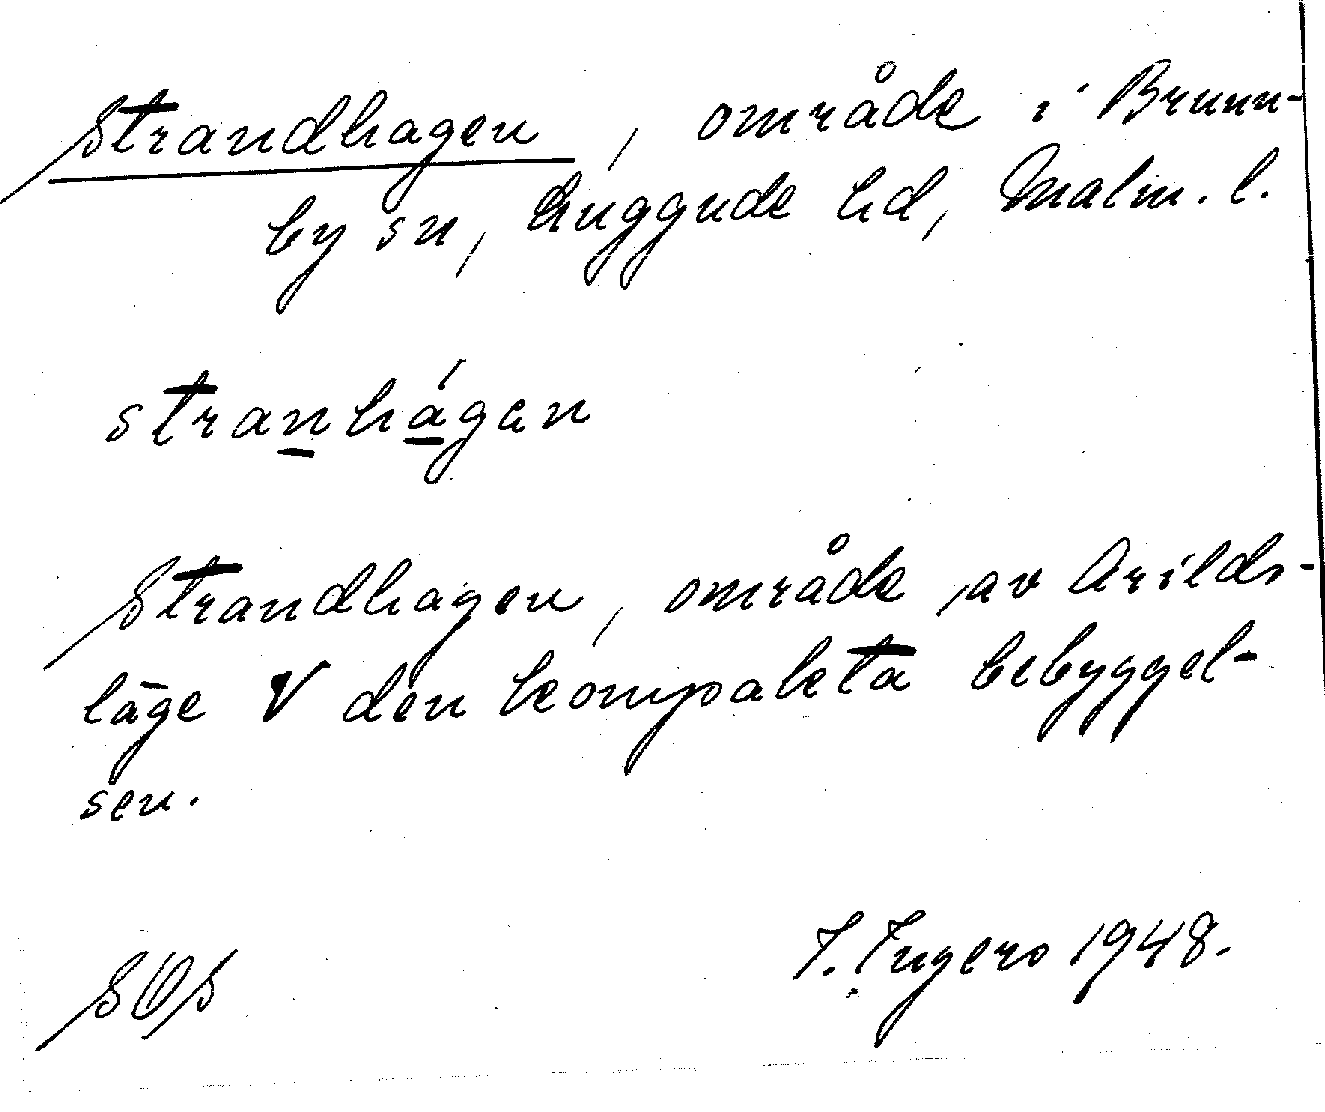 Strandhagen, område i Brunn-
by sn, Luggude hd, Malm. l.
stranhágen
Strandhagen, område av Arilds-
läge V den kompakta bebyggel-
sen.
I. Ingers 1948.
SOS